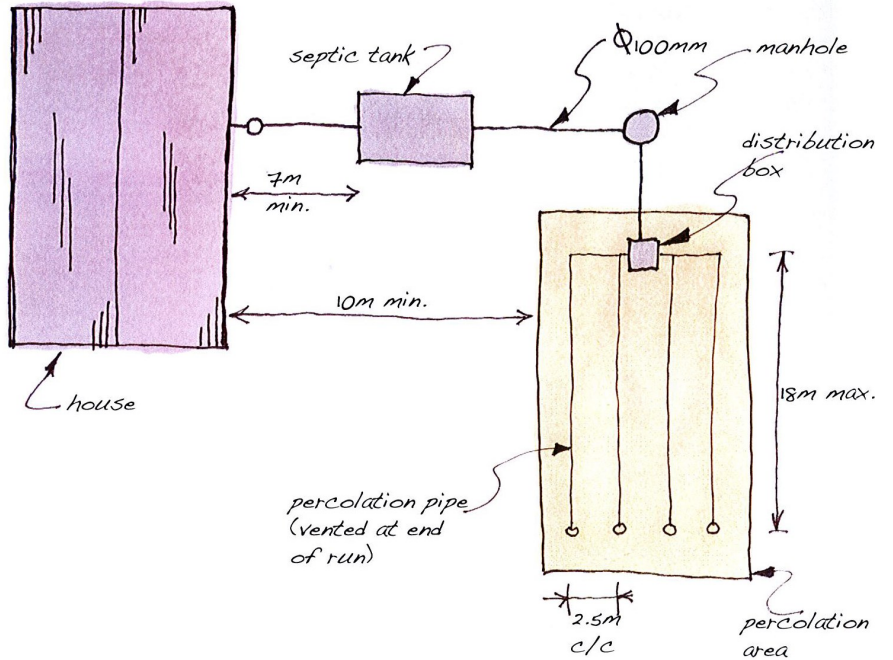 septic tank
Φ100mm
manhole
distribution
box
7m
min.
10m min.
house
18m max.
percolation pipe
(vented at end
of run)
2.5m
c/c
percolation
area